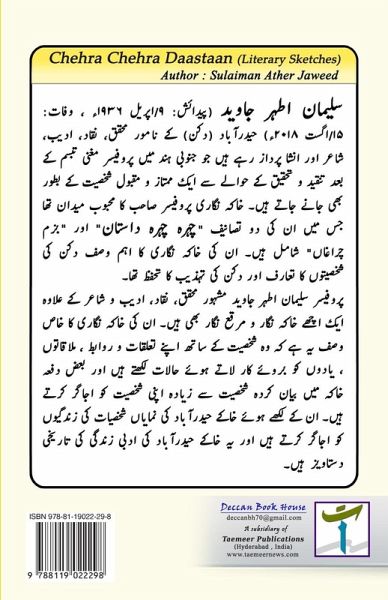 Chehra Chehra Daastaan (Literary Sketches)
Author : Sulaiman Ather Jaweed
سلیمان اطہر جاوید (پیدائش: ۹/اپریل ۱۹۳۶ء ، وفات:
۱۵/اگست ۲۰۱۸ء) حیدرآباد (دکن) کے نامور محقق، نقاد، ادیب،
شاعر اور انشا پرداز رہے ہیں جو جنوبی ہند میں پروفیسر مغنی تبسم کے
بعد تنقید و تحقیق کے حوالے سے ایک ممتاز و مقبول شخصیت کے بطور
بھی جانے جاتے ہیں۔ خاکہ نگاری پروفیسر صاحب کا محبوب میدان تھا
جس میں ان کی دو تصانیف "چہرہ چہرہ داستان" اور "بزم
چراغاں" شامل ہیں۔ ان کی خاکہ نگاری کا اہم وصف دکن کی
شخصیتوں کا تعارف اور دکن کی تہذیب کا تحفظ تھا۔
پروفیسر سلیمان اطہر جاوید مشہور محقق، نقاد، ادیب و شاعر کے علاوہ
ایک اچھے خاکہ نگار و مرقع نگار بھی ہیں۔ ان کی خاکہ نگاری کا خاص
وصف یہ ہے کہ وہ شخصیت کے ساتھ اپنے تعلقات و روابط ، ملاقاتوں
، یادوں کو بروئے کار لاتے ہوئے حالات لکھتے ہیں اور بعض دفعہ
خاکہ میں بیان کردہ شخصیت سے زیادہ اپنی شخصیت کو اجاگر کرتے
ہیں۔ ان کے لکھے ہوئے خاکے حیدرآباد کی نمایاں شخصیات کی زندگیوں
کو اجاگر کرتے ہیں اور یہ خاکے حیدرآباد کی ادبی زندگی کی تاریخی
دستاویز ہیں۔
ISBN 978-81-19022-29-8
9 788119 022298
Deccan Book House
deccanbh70@gmail.com
A subsidiary of
Taemeer Publications
(Hyderabad , India)
www.taemeernews.com